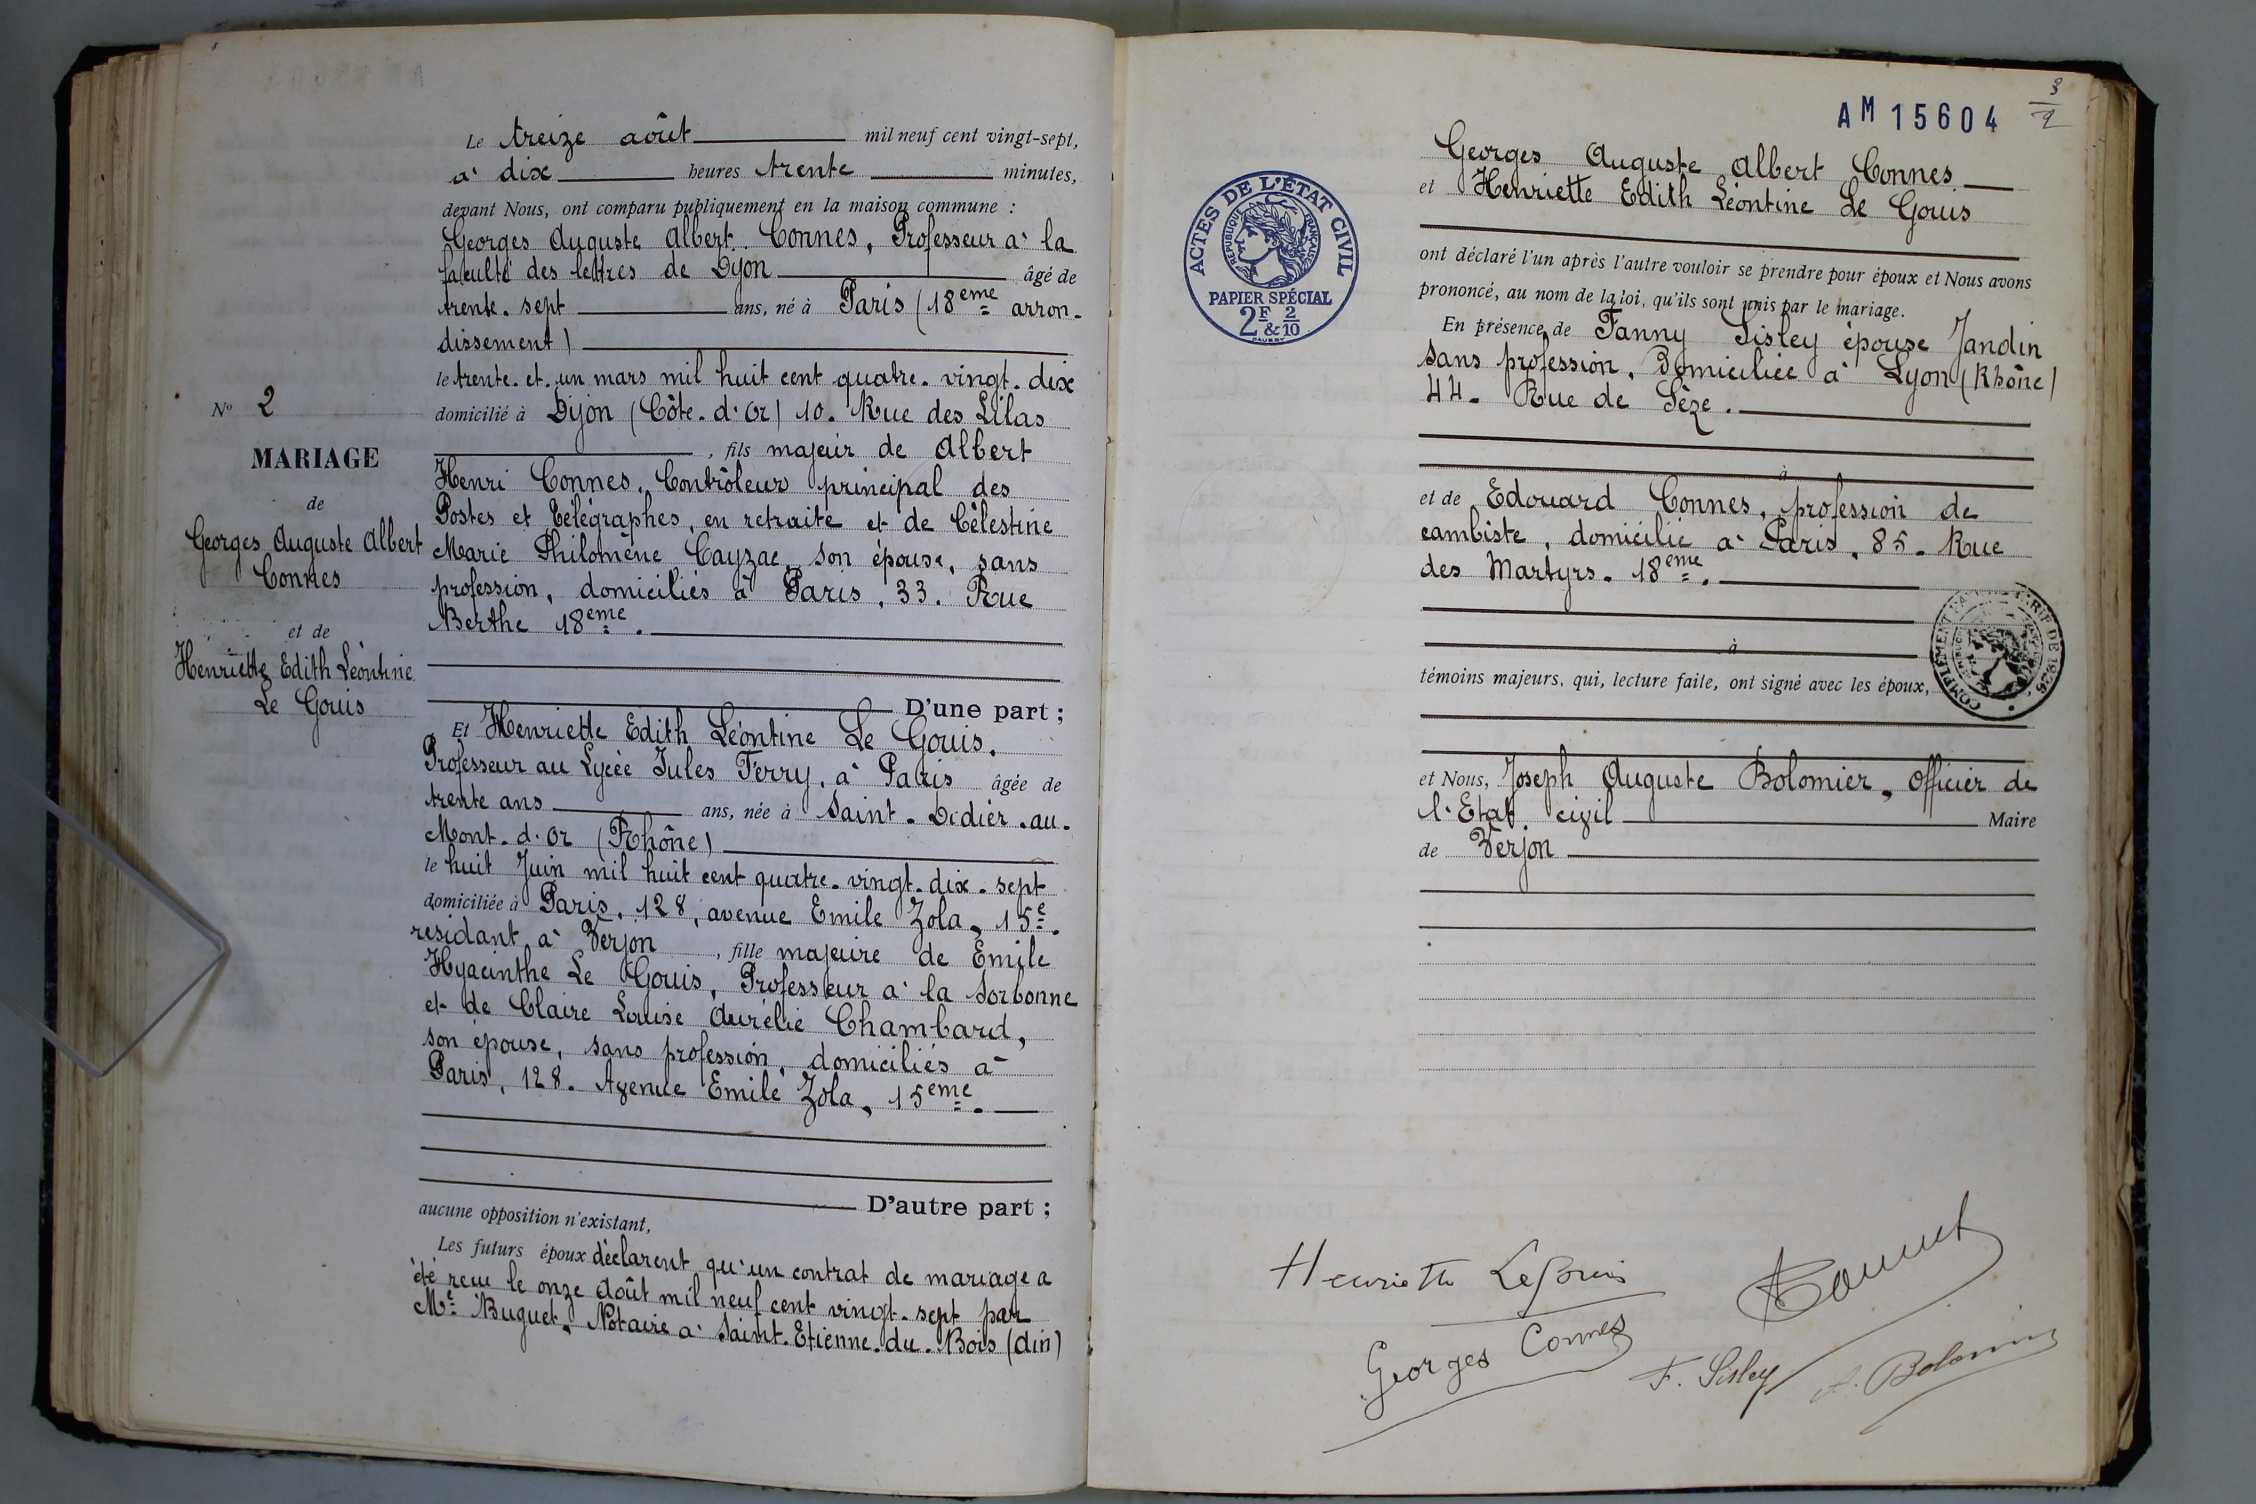 Le treize août mil neuf cent vingt-sept,
à dix heures trente minutes,
devant Nous, ont comparu publiquement en la maison commune :
Georges Auguste Albert Connes, Professeur à la
faculté des lettres de Dijon âgé de
trente-sept ans, né à Paris (18ème arron-
dissement)
le trente-et-un mars mil huit cent quatre-vingt-dix
domicilié à Dijon (Côte-d'Or) 10. Rue des Lilas
, fils majeur de Albert
Henri Connes, Contrôleur principal des
Postes et Télégraphes, en retraite et de Célestine
Marie Philomène Cayzac, son épouse, sans
profession, domiciliés à Paris, 33. Rue
Berthe 18ème.
D'une part ;
Nº 2
MARIAGE
de
Georges Auguste Albert
Connes
et de
Henriette Edith Léontine
Le Gouis
Et Henriette Edith Léontine Le Gouis.
Professeur au Lycée Jules Ferry, à Paris âgée de
trente ans ans, née à Saint-Didier-au-
Mont-d'Or (Rhône)
le huit Juin mil huit cent quatre-vingt-dix-sept
domiciliée à Paris, 128, avenue Emile Zola, 15e.
résidant à Verjon, fille majeure de Emile
Hyacinthe Le Gouis, Professeur à la Sorbonne
et de Claire Louise Aurélie Chambard,
son épouse, sans profession, domiciliés à
Paris, 128. Avenue Emile Zola, 15ème.
D'autre part ;
aucune opposition n'existant,
Les futurs époux déclarent qu'un contrat de mariage a
été reçu le onze Août mil neuf cent vingt-sept par
Me Buguet, Notaire à Saint-Etienne-du-Bois (Ain)
AM 15604
3
2
ACTES DE L'ÉTAT CIVIL
RÉPUBLIQUE FRANÇAISE
PAPIER SPÉCIAL
2F & 2/10
Georges Auguste Albert Connes
et Henriette Edith Léontine Le Gouis
ont déclaré l'un après l'autre vouloir se prendre pour époux et Nous avons
prononcé, au nom de la loi, qu'ils sont unis par le mariage.
En présence de Fanny Sisley épouse Jandin
sans profession, Domiciliée à Lyon (Rhône)
44. Rue de Sèze.
à
et de Edouard Connes, profession de
cambiste, domicilié à Paris, 85. Rue
des Martyrs. 18ème.
à
témoins majeurs, qui, lecture faite, ont signé avec les époux,
et Nous, Joseph Auguste Bolomier, Officier de
l'Etat civil Maire
de Verjon
Henriette Le Gouis
Georges Connes
F. Sisley
A. Bolomier